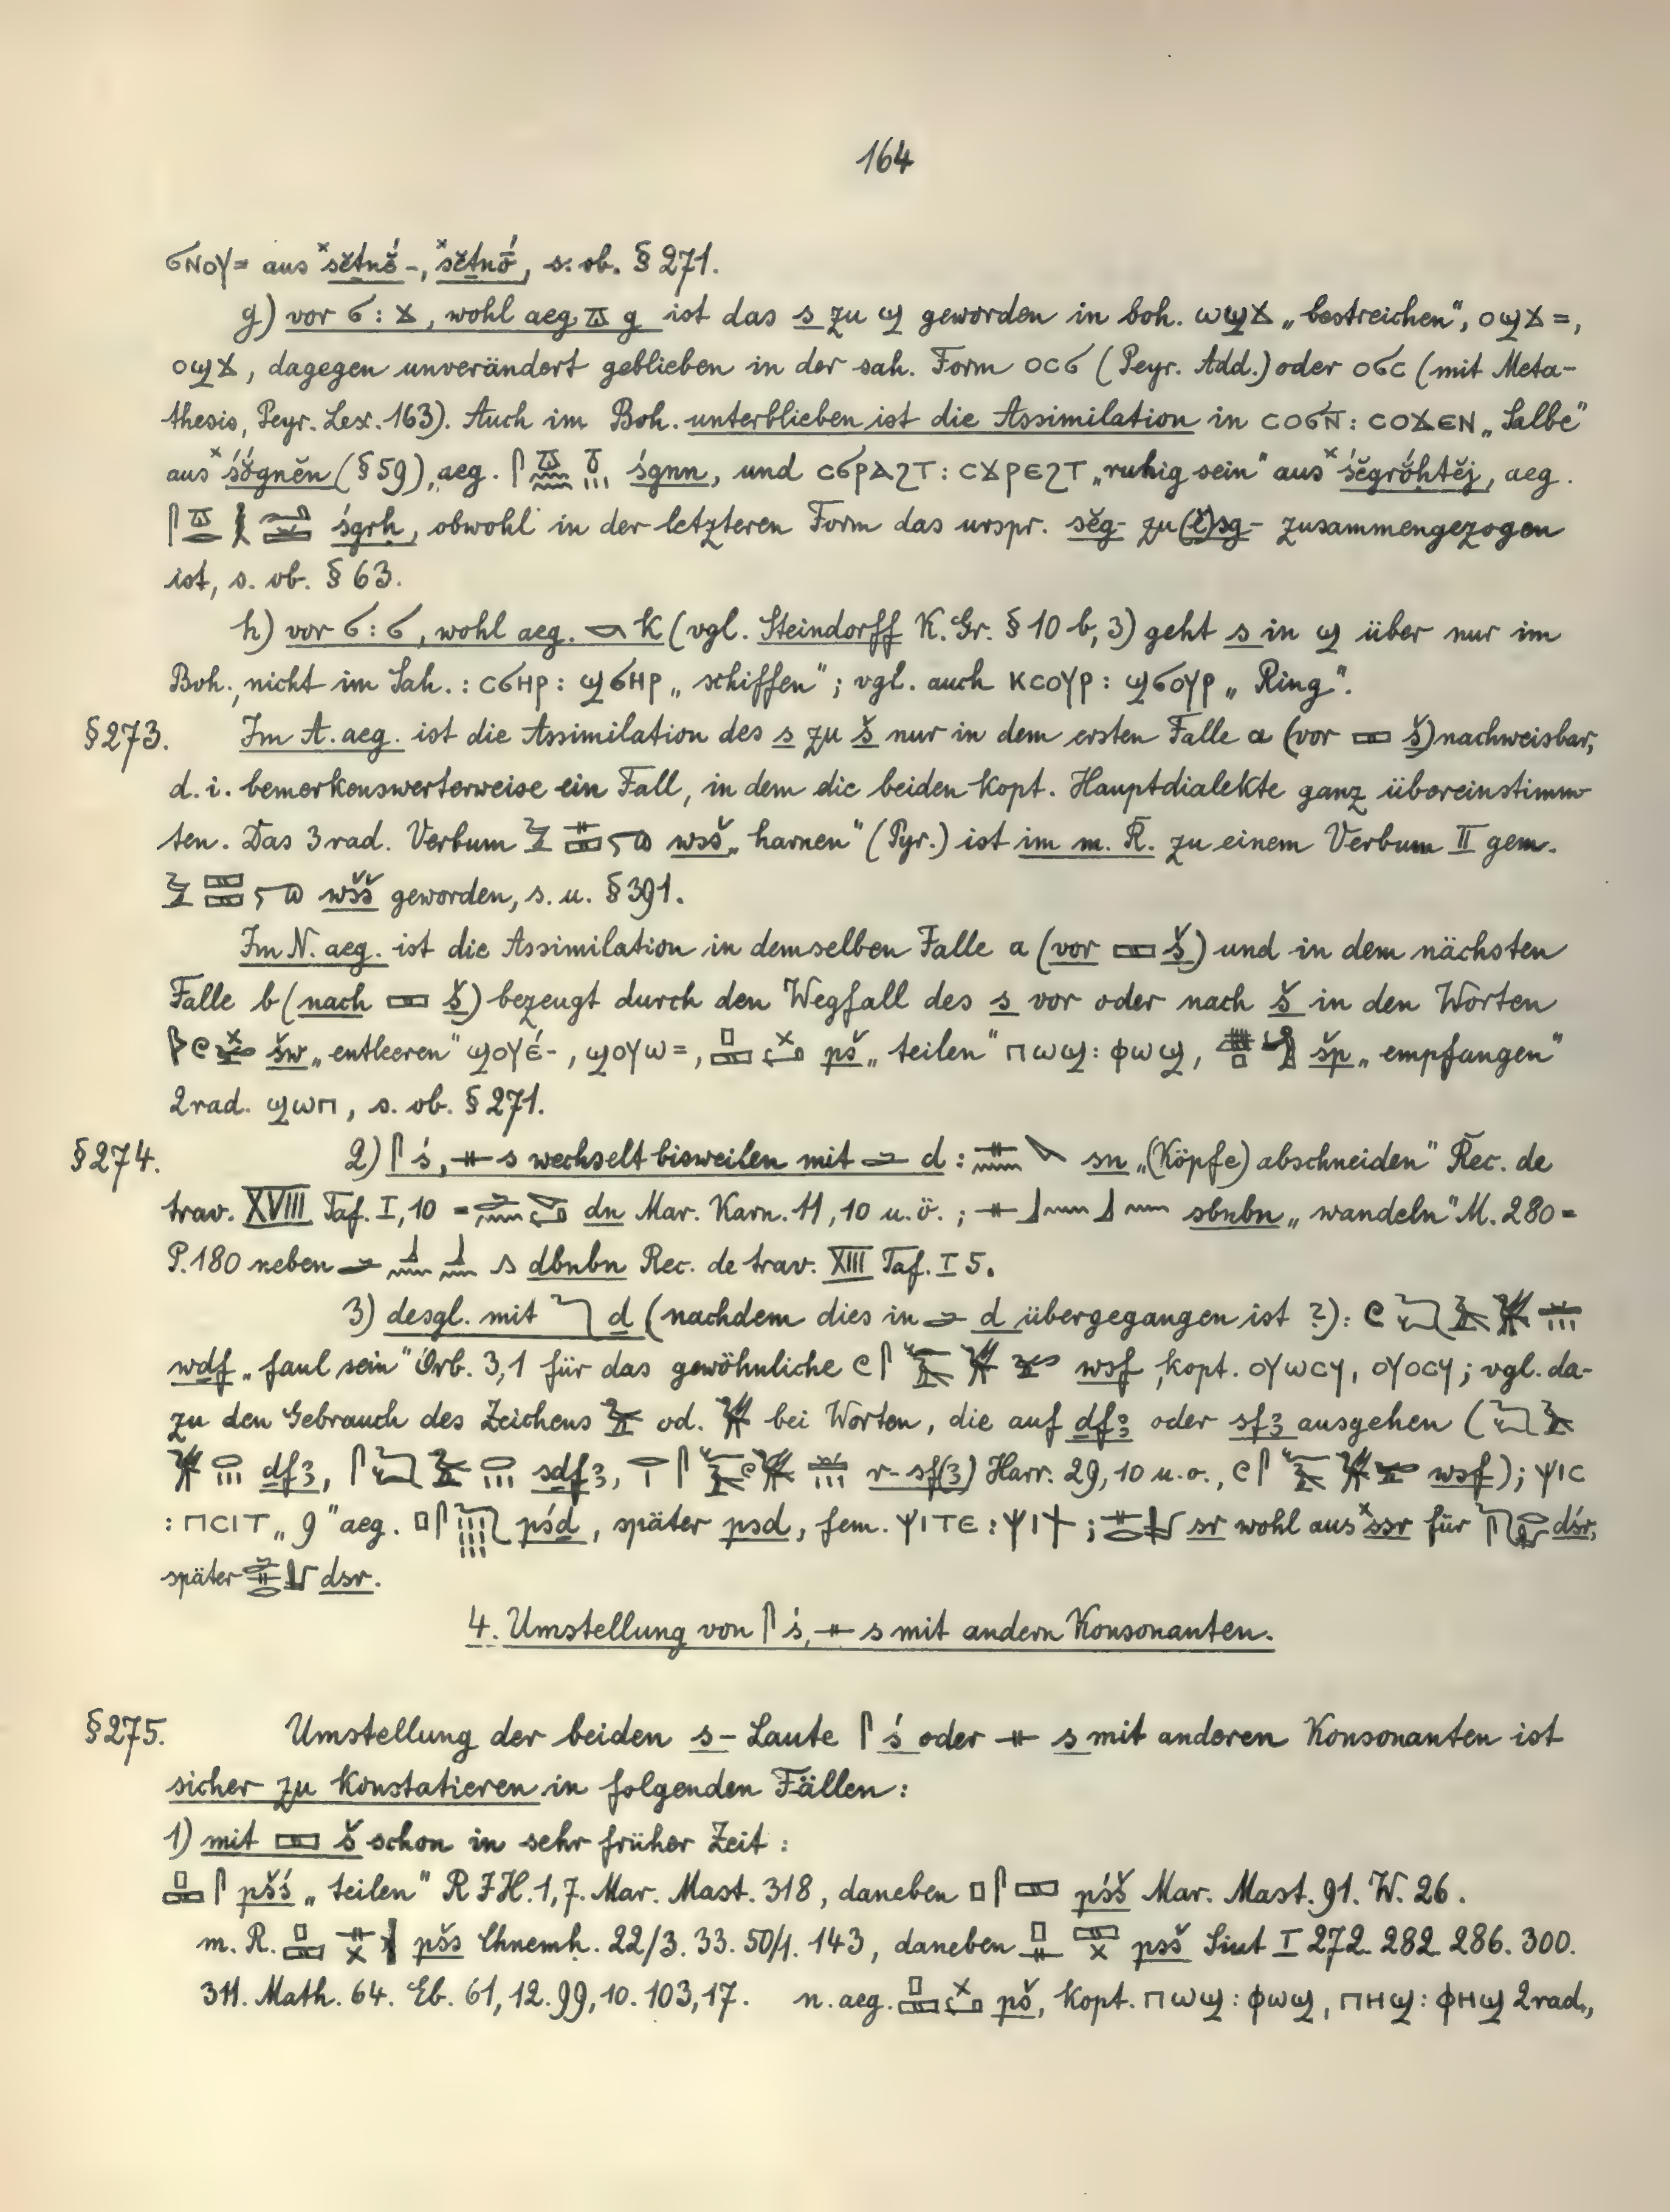 164
ϭⲛⲟⲩ= aus ˣsĕṯnĕ́-, ˣsĕṯnṓ, s. ob. § 271.
g) vor ϭ : ϫ, wohl aeg. 𓎼 g ist das s zu ϣ geworden in boh. ⲱϣϫ „bestreichen“, ⲟϣϫ=,
ⲟϣϫ, dagegen unverändert geblieben in der sah. Form ⲟⲥϭ (Peyr. Add.) oder ⲟϭⲥ (mit Meta-
thesis, Peyr. Lex. 163). Auch im Boh. unterblieben ist die Assimilation in ⲥⲟϭⲛ̄ : ⲥⲟϫⲉⲛ „Salbe“
aus ˣśŏ́gnĕn (§ 59), aeg. śgnn, und ⲥϭⲣⲁϩⲧ : ⲥϫⲣⲉϩⲧ „ruhig sein“ aus ˣśĕgrŏ́ḥtĕj, aeg.
śgrḥ, obwohl in der letzteren Form das urspr. sĕg- zu (ĕ)sg- zusammengezogen
ist, s. ob. § 63.
h) vor ϭ : ϭ, wohl aeg. 𓎡 k (vgl. Steindorff K. Gr. § 10 b, 3) geht s in ϣ über nur im
Boh., nicht im Sah. : ⲥϭⲏⲣ : ϣϭⲏⲣ „schiffen“; vgl. auch ⲕⲥⲟⲩⲣ : ϣϭⲟⲩⲣ „Ring“.
§ 273. Im A. aeg. ist die Assimilation des s zu š nur in dem ersten Falle a (vor 𓈙 š) nachweisbar,
d. i. bemerkenswerterweise ein Fall, in dem die beiden kopt. Hauptdialekte ganz übereinstimm-
ten. Das 3rad. Verbum wsš „harnen“ (Pyr.) ist im m. R. zu einem Verbum II gem.
wšš geworden, s. u. § 391.
Im N. aeg. ist die Assimilation in demselben Falle a (vor 𓈙 š) und in dem nächsten
Falle b (nach 𓈙 š) bezeugt durch den Wegfall des s vor oder nach š in den Worten
šw „entleeren“ ϣⲟⲩⲉ́-, ϣⲟⲩⲱ=, pš „teilen“ ⲡⲱϣ : ⲫⲱϣ, šp „empfangen“
2rad. ϣⲱⲡ, s. ob. § 271.
§ 274. 2) 𓋴 ś, 𓊃 s wechselt bisweilen mit 𓂧 d : sn „(Köpfe) abschneiden“ Rec. de
trav. XVIII Taf. I, 10 = dn Mar. Karn. 11, 10 u. ö. ; 𓊃𓃀𓈖𓃀𓈖 sbnbn „wandeln“ M. 280 =
P. 180 neben dbnbn Rec. de trav. XIII Taf. I 5.
3) desgl. mit 𓆓 ḏ (nachdem dies in 𓂧 d übergegangen ist ?) :
wḏf „faul sein“ Orb. 3,1 für das gewöhnliche wsf, kopt. ⲟⲩⲱⲥϥ, ⲟⲩⲟⲥϥ ; vgl. da-
zu den Gebrauch des Zeichens od. bei Worten, die auf ḏfꜣ oder sfꜣ ausgehen (
ḏfꜣ, sḏfꜣ, r-sf(ꜣ) Harr. 29, 10 u. o., wsf) ; ⲯⲓⲥ
: ⲡⲥⲓⲧ „9“ aeg. pśḏ, später psd, fem. ⲯⲓⲧⲉ : ⲯⲓϯ ; sr wohl aus ˣssr für ḏśr,
später dsr.
4. Umstellung von 𓋴 ś, 𓊃 s mit andern Konsonanten.
§ 275. Umstellung der beiden s-Laute 𓋴 ś oder 𓊃 s mit anderen Konsonanten ist
sicher zu konstatieren in folgenden Fällen :
1) mit 𓈙 š schon in sehr früher Zeit :
𓊪𓈙𓋴 pšś „teilen“ R I H. 1, 7. Mar. Mast. 318, daneben 𓊪𓋴𓈙 pśš Mar. Mast. 91. W. 26.
m. R. pšs Chnemh. 22/3. 33. 50/1. 143, daneben psš Siut I 272. 282. 286. 300.
311. Math. 64. Eb. 61, 12. 99, 10. 103, 17. n. aeg. pš, kopt. ⲡⲱϣ : ⲫⲱϣ, ⲡⲏϣ : ⲫⲏϣ 2rad.,